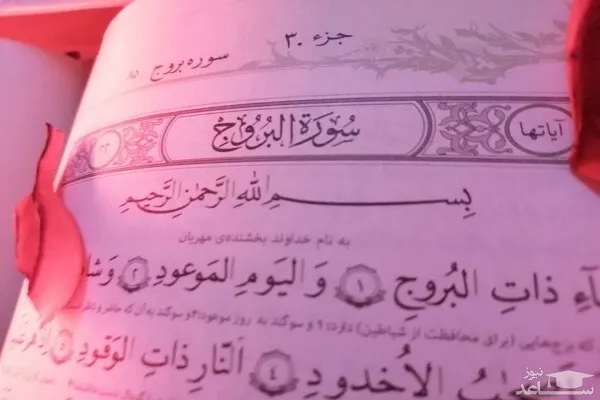 جزء ۳۰
سوره بروج ۸۵
آیاتها
سُورَةُ البُرُوجِ
۲۲
بِسمِ اللهِ الرَّحمٰنِ الرَّحیمِ
به نام خداوند بخشنده‌ی مهربان
ذاتِ البُروجِ ۱ وَالیَومِ المَوعودِ ۲
که برج‌هایی (برای محافظت از شیاطین) دارد؛ ۱ و سوگند به روز موعود؛ ۲ و سوگند به آن که حاضر و ناظر
الأُخدودِ ۴ النّارِ ذاتِ الوَقودِ ۵ إِذ هُم
نیوز
ســاعد